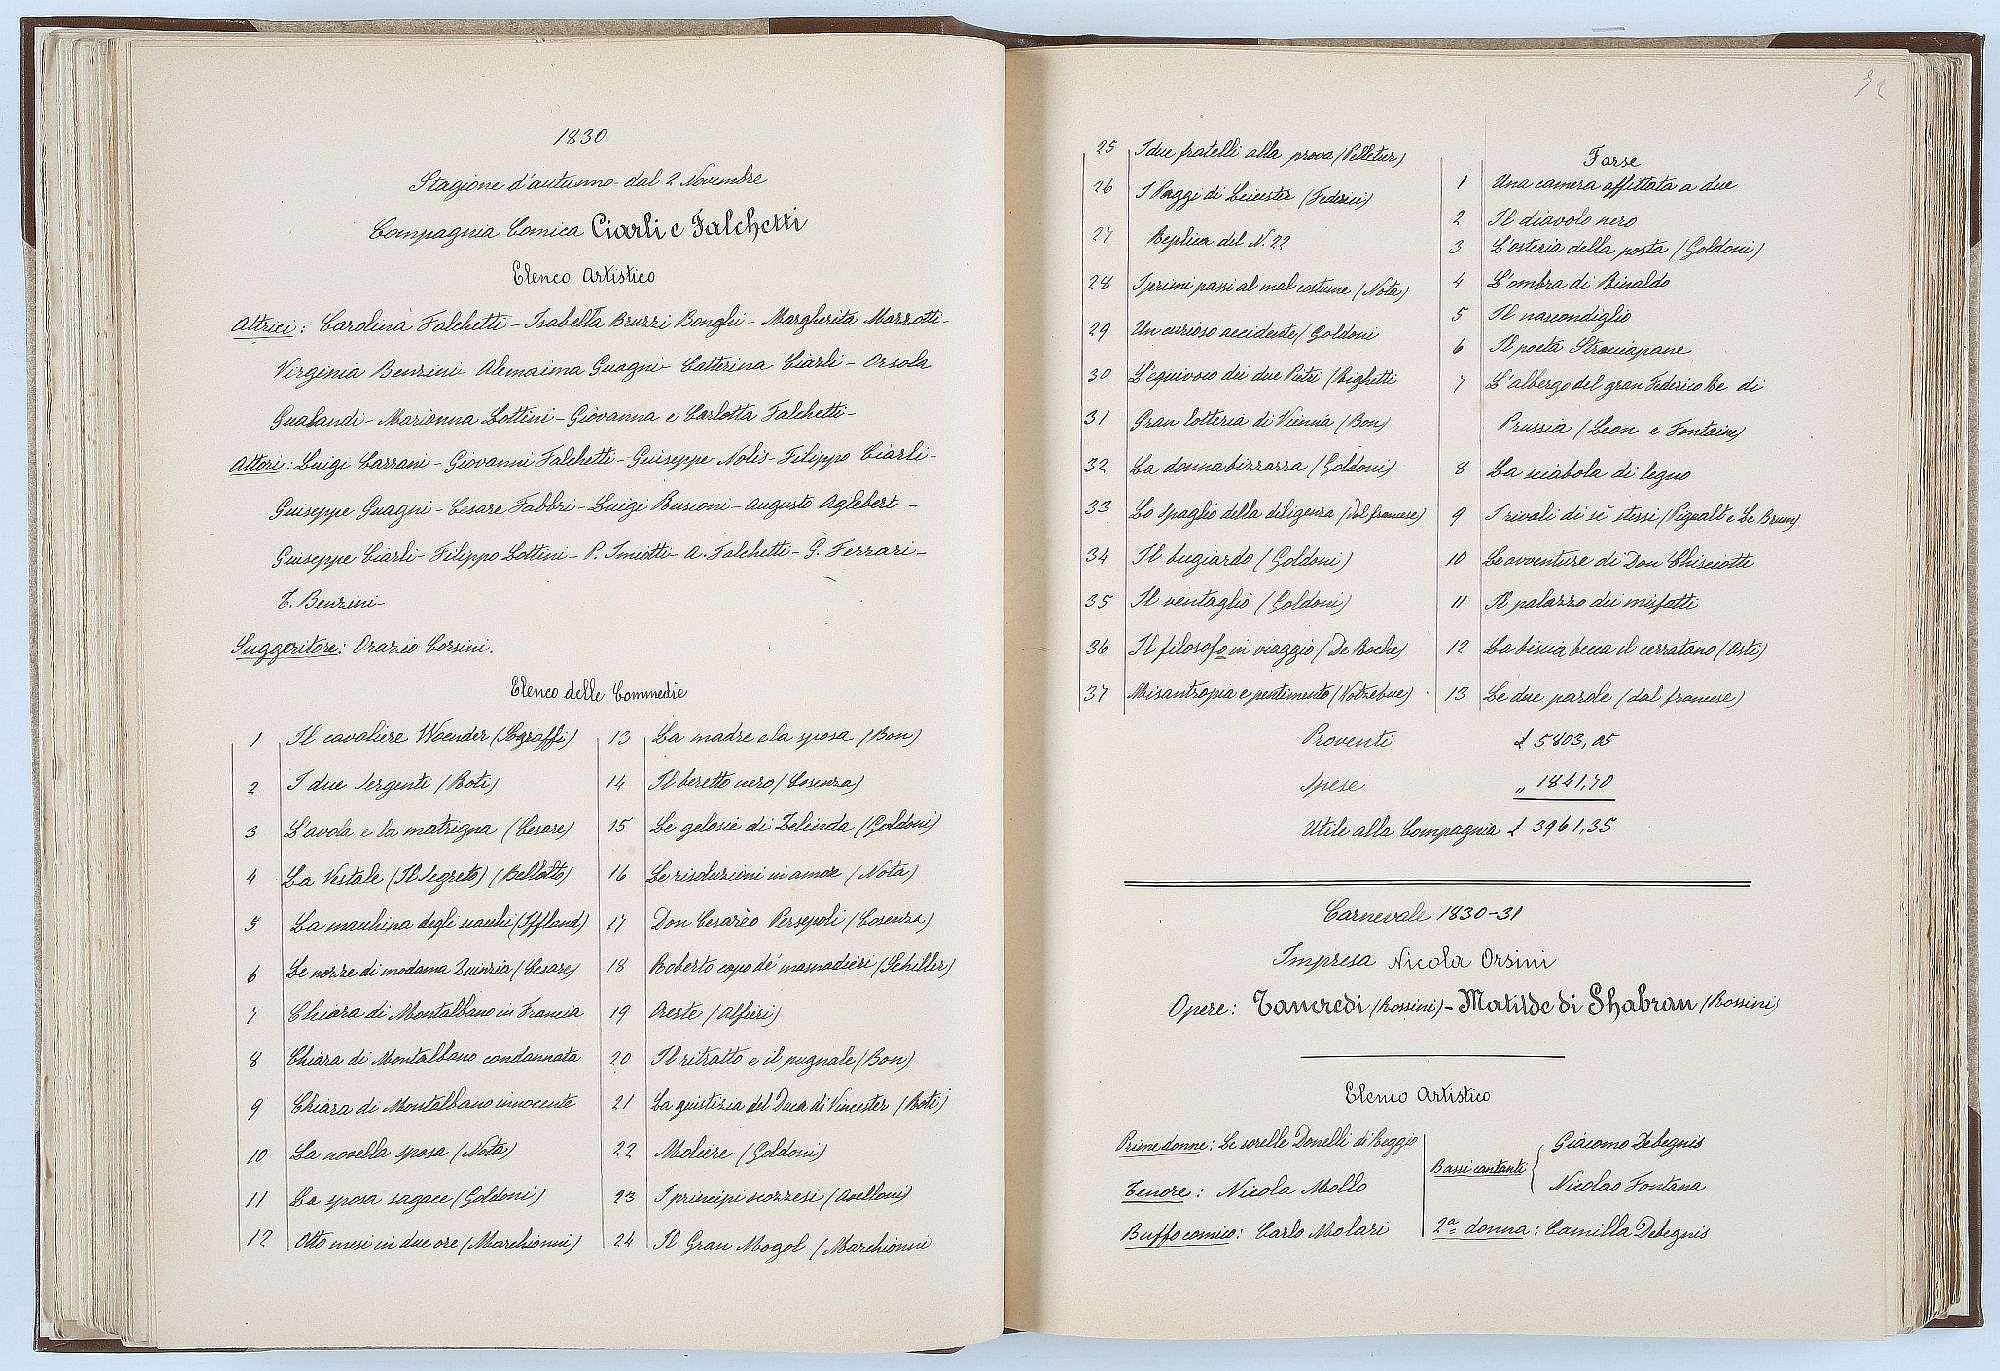 1830
Stagione d'autunno dal 2 Novembre
Compagnia Comica Ciarli e Falchetti
Elenco Artistico
Attrici: Carolina Falchetti - Isabella Bruzzi Bonghi - Margherita Mazzotti -
Virginia Benzini Alemaima Guagni - Catterina Ciarli - Orsola
Gualandi - Marianna Lottini - Giovanna e Carlotta Falchetti -
Attori: Luigi Carrani - Giovanni Falchetti - Giuseppe Nolis - Filippo Ciarli -
Giuseppe Guagni - Cesare Fabbri - Luigi Busconi - Augusto Aglebert -
Giuseppe Ciarli - Filippo Lottini - P. Imiotti - A. Falchetti - G. Ferrari -
T. Benzini -
Suggeritore: Orazio Corsini.
Elenco delle Commedie
1 Il cavaliere Woender (Sograffi)
2 I due sergenti (Roti)
3 L'avola e la matrigna (Cesare)
4 La Vestale (Il Segreto) (Bellotto)
5 La macchina degli scacchi (Iffland)
6 Le nozze di madama Quinzia (Cesare)
7 Chiara di Montalbano in Francia
8 Chiara di Montalbano condannata
9 Chiara di Montalbano innocente
10 La novella sposa (Nota)
11 La sposa sagace (Goldoni)
12 Otto mesi in due ore (Marchionni)
13 La madre e la sposa (Bon)
14 Il beretto nero (Cosenza)
15 Le gelosie di Zelinda (Goldoni)
16 Le risoluzioni in amore (Nota)
17 Don Cesarèo Persepoli (Cosenza)
18 Roberto capo de' masnadieri (Schiller)
19 Oreste (Alfieri)
20 Il ritratto e il pugnale (Bon)
21 La giustizia del Duca di Vincester (Roti)
22 Moliere (Goldoni)
23 I principi scozzesi (Avelloni)
24 Il Gran Mogol (Marchionni
25 I due fratelli alla prova (Pelletier)
26 I Paggi di Leicester (Federici)
27 Replica del N. 22
28 I primi passi al mal costume (Nota)
29 Un curioso accidente (Goldoni
30 L'equivoco dei due Pietri (Righetti
31 Gran lotteria di Vienna (Bon)
32 La donna bizzarra (Goldoni)
33 Lo spaglio della diligenza (dal francese)
34 Il bugiardo (Goldoni)
35 Il ventaglio (Goldoni)
36 Il filosofo in viaggio (De Roche)
37 Misantropia e pentimento (Kotzebue)
Farse
1 Una camera affittata a due
2 Il diavolo nero
3 L'osteria della posta (Goldoni)
4 L'ombra di Rinaldo
5 Il nascondiglio
6 Il poeta Strociapane
7 L'albergo del gran Federico Re di
Prussia (Leon e Fontaine)
8 La sciabola di legno
9 I rivali di sè stessi (Pigualt e Le Brun)
10 Le avventure di Don Chisciotti
11 Il palazzo dei misfatti
12 La biscia becca il cerratano (Asti)
13 Le due parole (dal francese)
Proventi £ 5803,05
Spese „ 1841,70
Utile alla Compagnia £ 3961,35
Carnevale 1830-31
Impresa Nicola Orsini
Opere: Tancredi (Rossini) - Matilde di Shabran (Rossini)
Elenco Artistico
Prime donne: Le sorelle Donelli di Reggio
Tenore: Nicola Mollo
Buffo comico: Carlo Molari
Bassi cantanti { Giacomo Debegnis
Nicolao Fontana
2ª donna: Camilla Debegnis